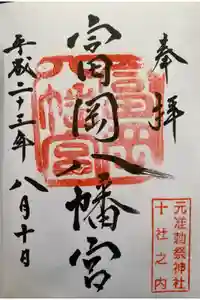 奉拝
富岡八幡宮
富岡八幡宮
平成二十三年 八月十日
元准勅祭神社
十社之内